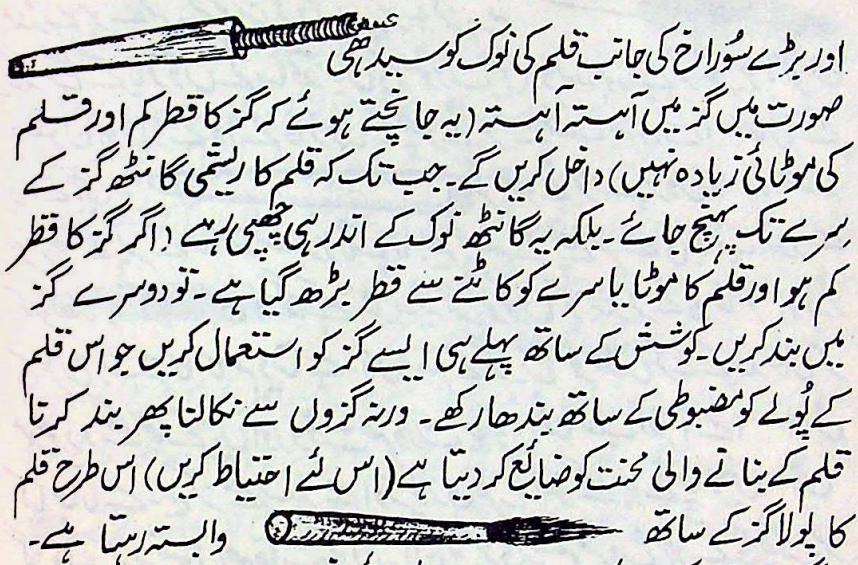 اور بڑے سُوراخ کی جانب قلم کی نوک کو سیدھی
صورت میں گز میں آہستہ آہستہ (یہ جانچتے ہوئے کہ گز کا قطر کم اور قلم
کی موٹائی زیادہ نہیں) داخل کریں گے۔ جب تک کہ قلم کا ریشمی گانٹھ گز کے
سِرے تک پہنچ جائے۔ بلکہ یہ گانٹھ نوک کے اندر ہی چھپی رہے (اگر گز کا قطر
کم ہو اور قلم کا موٹا یا سرے کو کاٹنے سے قطر بڑھ گیا ہے۔ تو دوسرے گز
میں بند کریں۔ کوشش کے ساتھ پہلے ہی ایسے گز کو استعمال کریں جو اس قلم
کے پُولے کو مضبوطی کے ساتھ بندھا رکھے۔ ورنہ گزوں سے نکالنا پھر بند کرنا
قلم کے بنانے والی محنت کو ضائع کر دیتا ہے (اس لئے احتیاط کریں) اس طرح قلم
کا پولا گز کے ساتھ وابستہ رہتا ہے۔